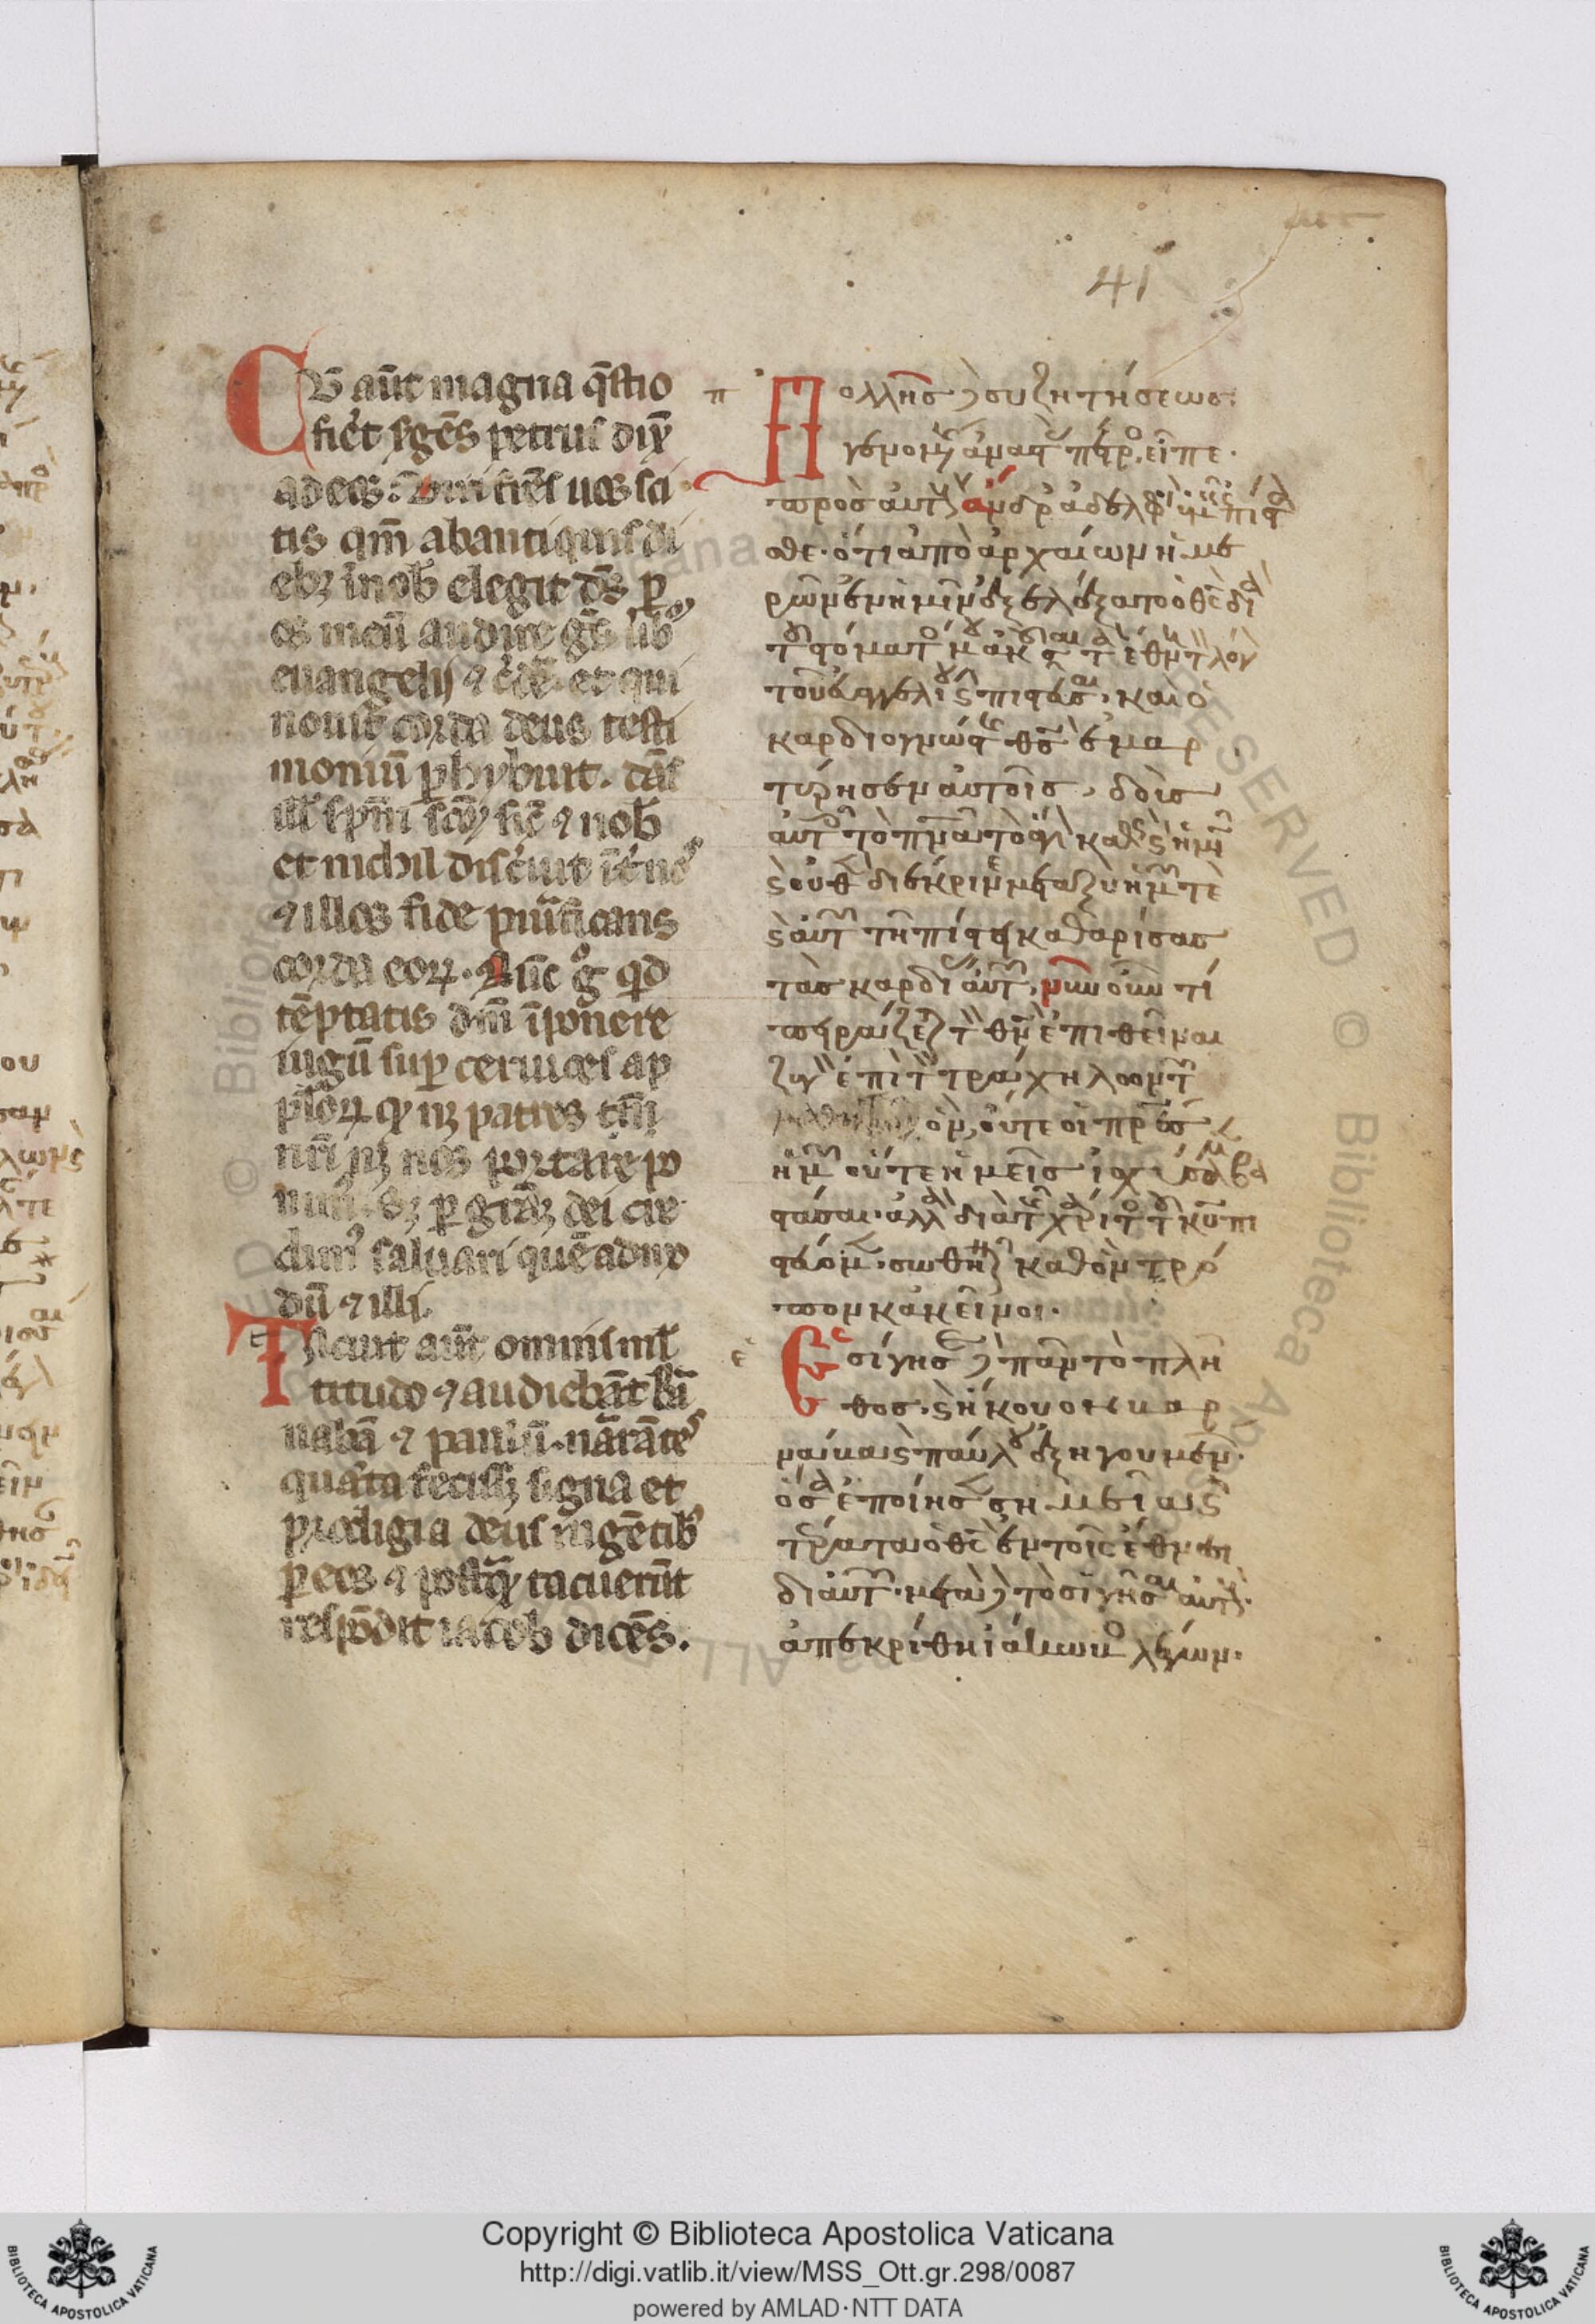 41
Cū aūt magna q̄stio
fier̄t sʼgēs petrus dix̄
ad eos: viri frēs uos sci
tis qm̄ ab antiquis di
ebꝫ ī nob̄ elegit dś ꝑ
os meū audire gn̄s ūbꝫ
euangelij ⁊ cʼdē. et qui
nouit corda deus testi
moniū ꝑhybuit. dās
ill̄ sp̄m sc̄m sic̄ ⁊ nob̄
et nichil disc̄uit īt̄ nos
⁊ illos fide purificans
corda eoꝝ. Nūc g̊ qd̓
tēptatis dm̄ īponere
iugū suꝑ ceruices
pl̄oꝝ qꝫ nꝫ patres
nr̄i nꝫ nos portare po
ꝑ gr̄aꝫ dei cre
dimꝰ saluari quē admo
dū ⁊ illi.
Tacuit aūt omnis ml̄
titudo ⁊ audiebāt bar̄
nabā ⁊ paulū. nar̄ātes
quāta fecissꝫ signa et
prodigia deus in gētibꝰ
ꝑ eos ⁊ postꝙ̄ tacuerūt
respōdit iacob dicēs.
π Πολλῆς δὲ συζητήσεως
γενομέν ἀναστ πέτρο εἶπε·
πρὸς αὐτούς ἄνδρ ἀδελφοὶ ὑμεῖς ἐπίστα
σθε· ὅτι ἀπὸ ἀρχαίων ἡμε
ρῶν ἐν ἡμῖν ἐξελέξατο ὁ θς̄ διὰ
τοῦ στόματό μου ἀκοῦσαι τὰ ἔθνη τὸν λόγ
τοῦ εὐαγγελίου κ πιστεῦσαι· καὶ ὁ
καρδιογνώστης θς̄ ἐμαρ
τύρησεν αὐτοῖς, δοὺς
αὐτοῖς τὸ πνᾶ τὸ ἅγι καθὼς κ ἡμῖ
κ οὐθὲν διέκρινε μεταξὺ ἡμῶν τὲ
κ αὐτῶν τῇ πίστει καθαρίσας
τὰς καρδίας αὐτῶν, νῦν οὖν τί
πειράζετε τὸν θν̄ ἐπιθεῖναι
ζυγὸν ἐπὶ τὸν τράχηλον τῶν
ὃν, οὔτε οἱ πρ̄ες
ἡμῶν οὔτε ἡμεῖς ἰσχύσαμεν βα
στάσαι· ἀλλὰ διὰ τῆς χάριτος τοῦ κῡ πι
στεύομεν· σωθῆναι καθ᾽ ὃν τρό
πον κἀκεῖνοι·
ε Ἐσίγησε δὲ πᾶν τὸ πλῆ
θος· κ ἤκουον βαρ
νάβα κ παύλου ἐξηγουμέν·
ὅσα ἐποίησεν σημεῖα κ
τέρατα ὁ θς̄ ἐν τοῖς ἔθνεσι
δι᾽ αὐτῶν· μετὰ δὲ τὸ σιγῆσαι αὐτούς·
ἀπεκρίθη ἰάκωβο λέγων·
Copyright © Biblioteca Apostolica Vaticana
http://digi.vatlib.it/view/MSS_Ott.gr.298/0087
powered by AMLAD·NTT DATA
BIBLIOTECA APOSTOLICA VATICANA
BIBLIOTECA APOSTOLICA VATICANA